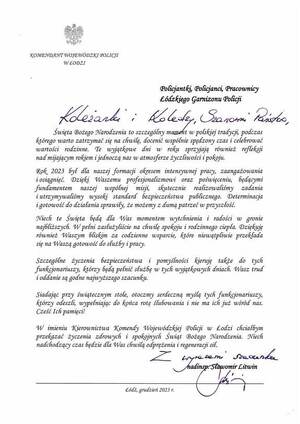 KOMENDANT WOJEWÓDZKI POLICJI
W ŁODZI
Policjantki, Policjanci, Pracownicy
Łódzkiego Garnizonu Policji
Koleżanki i Koledzy, Szanowni Państwo,
Święta Bożego Narodzenia to szczególny moment w polskiej tradycji, podczas
którego warto zatrzymać się na chwilę, docenić wspólnie spędzony czas i celebrować
wartości rodzinne. Te wyjątkowe dni w roku sprzyjają również refleksji
nad mijającym rokiem i jednoczą nas w atmosferze życzliwości i pokoju.
Rok 2023 był dla naszej formacji okresem intensywnej pracy, zaangażowania
i osiągnięć. Dzięki Waszemu profesjonalizmowi oraz poświęceniu, będącymi
fundamentem naszej wspólnej misji, skutecznie realizowaliśmy zadania
i utrzymywaliśmy wysoki standard bezpieczeństwa publicznego. Determinacja
i gotowość do działania sprawiły, że możemy z dumą patrzeć w przyszłość.
Niech te Święta będą dla Was momentem wytchnienia i radości w gronie
najbliższych. W pełni zasłużyliście na chwilę spokoju i rodzinnego ciepła. Dziękuję
również Waszym bliskim za codzienne wsparcie, które niewątpliwie przekłada
się na Waszą gotowość do służby i pracy.
Szczególne życzenia bezpieczeństwa i pomyślności kieruję także do tych
funkcjonariuszy, którzy będą pełnić służbę w tych wyjątkowych dniach. Wasz trud
i oddanie są godne najwyższego szacunku.
Siadając przy świątecznym stole, otoczmy serdeczną myślą tych funkcjonariuszy,
którzy odeszli, wypełniając do końca rotę ślubowania i nie ma ich już wśród nas.
Cześć Ich pamięci!
W imieniu Kierownictwa Komendy Wojewódzkiej Policji w Łodzi chciałbym
przekazać życzenia zdrowych i spokojnych Świąt Bożego Narodzenia. Niech
nadchodzący czas będzie dla Was chwilą odprężenia i regeneracji sił.
Z wyrazami szacunku
nadinsp. Sławomir Litwin
Łódź, grudzień 2023 r.